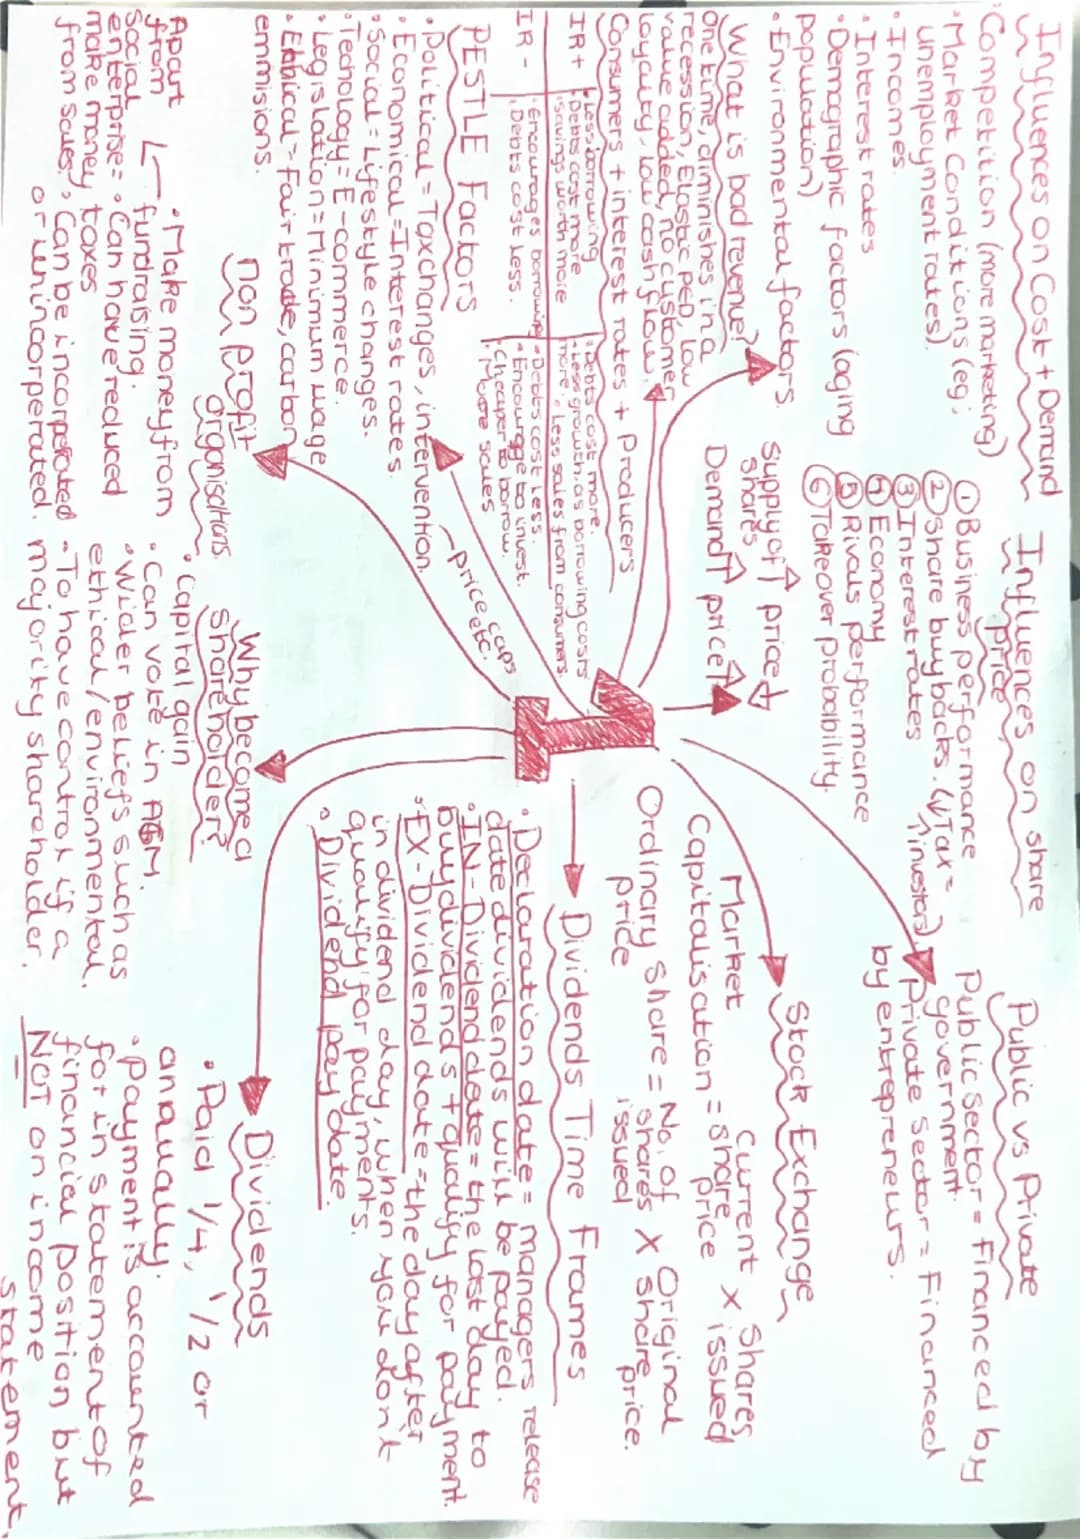 Influences on Cost + Demand
· Competition (more marketing)
· Market Conditions (eg;
unemployment rates).
· Incomes.
· Interest rates
· Demagraphic factors (aging
population)
· Environmental factors.
What is bad revenue?
One time, diminishes in a
recession, Elastic PED, low
value added, no customer
loyalty, low cash flow.
Consumers + interest rates + Producers
IR +
· Less borrowing
· Debts cost more
· savings worth more
· Debts cost more.
· Less growth, as borrowing costs
more. · Less sales from consumers.
IR -
· Encourages borrowing
· Debts cost less.
· Debts cost less.
· Encourage to invest.
· Cheaper to borrow.
· More sales
PESTLE Factors
· Political = Tax changes, intervention.
price caps
etc.
· Economical = Interest rates
· Social = Lifestyle changes.
· Techology = E-commerce.
· Legislation = Minimum wage
· Ethical = Fair trade, carbon
emmisions.
non profit
organisations.
· Make money from
fundraising.
Apart
from
social
enterprise =
make money
from sales.
· Can have reduced
taxes
· Can be incorperated
or unincorperated.
Influences on share
price
① Business performance
② Share buybacks. (↓Tax =
↑investors)
③ Interest rates
④ Economy
⑤ Rivals performance
⑥ Takeover probability.
Supply of ↑ price ↓
shares
Demand ↑ price ↑
1
Public vs Private
Public sector = Financed by
government.
Private sector = Financed
by entrepreneurs.
Stock Exchange
Market
Capitalisation = Current share price X Shares issued
Ordinary share price = No. of shares issued X Original share price.
Dividends Time Frames
· Declaration date = managers release
date dividends will be payed.
· IN-Dividend date = the last day to
buy dividends + qualify for payment.
· EX-Dividend date = the day after
in dividend day, when you don't
qualify for payments.
· Dividend pay date.
Why become a
shareholder?
· Capital gain
· Can vote in AGM.
· Wider beliefs such as
ethical/environmental.
· To have control if a
majority shareholder.
Dividends
· Paid 1/4, 1/2 or
annually.
· Payment is accounted
for in statement of
financial position but
NOT on income
statement.